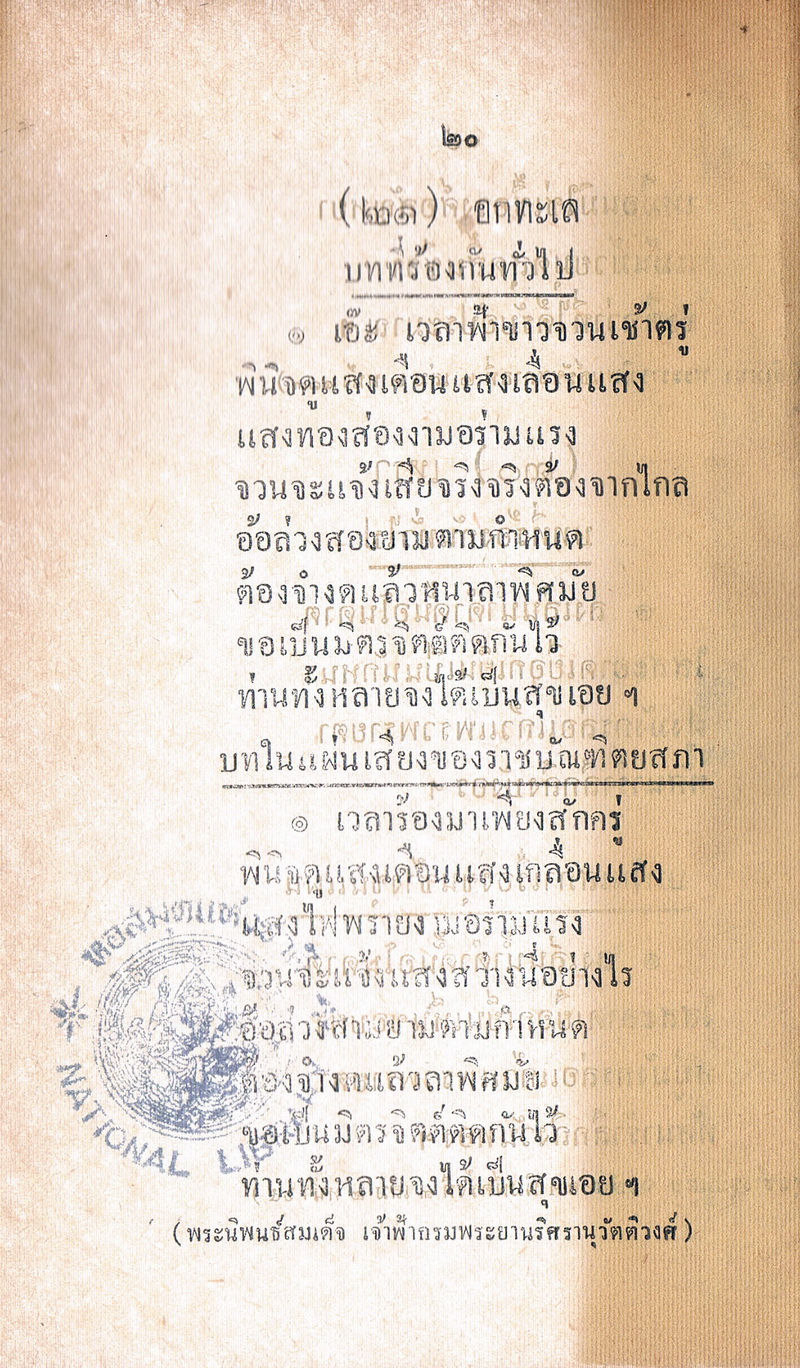 ๒๐
(๒๑) อกทะเล
บทที่ร้องกันทั่วไป
๏ เอ๊ะ เวลาฟ้าขาวจวนเช้าตรู่
พินิจดูแสงเดือนแสงเลื่อนแสง
แสงทองส่องงามอร่ามแรง
จวนจะแจ้งเสียจริงจริงต้องจากไกล
อ้อล่วงสองยามตามกำหนด
ต้องจำงดแล้วหนาลาพิศมัย
ขอเป็นมิตรจิตต์ติดกันไว้
ท่านทั้งหลายจงได้เป็นสุขเอย ฯ
บทในแผ่นเสียงของราชบัณฑิตยสภา
๏ เวลาร้องมาเพียงสักครู่
พินิจดูแสงเดือนแสงเกลื่อนแสง
แสงไฟพรายงามอร่ามแรง
จวนจะแจ้งแสงสว่างนี่อย่างไร
อ้อล่วงสามยามตามกำหนด
ต้องจำงดแล้วลาพิศมัย
ขอเป็นมิตรจิตต์ติดกันไว้
ท่านทั้งหลายจงได้เป็นสุขเอย ฯ
(พระนิพนธ์สมเด็จ เจ้าฟ้ากรมพระยานริศรานุวัตติวงศ์)
หอสมุดแห่ง
NATIONAL LIB